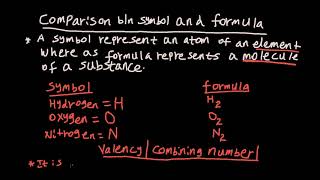 Comparison b/n symbol and formula
* A symbol represent an atom of an element
where as formula represents a molecule
of a substance.
Symbol formula
Hydrogen = H H₂
Oxygen = O O₂
Nitrogen = N N₂
Valency | Combining number |
* It is